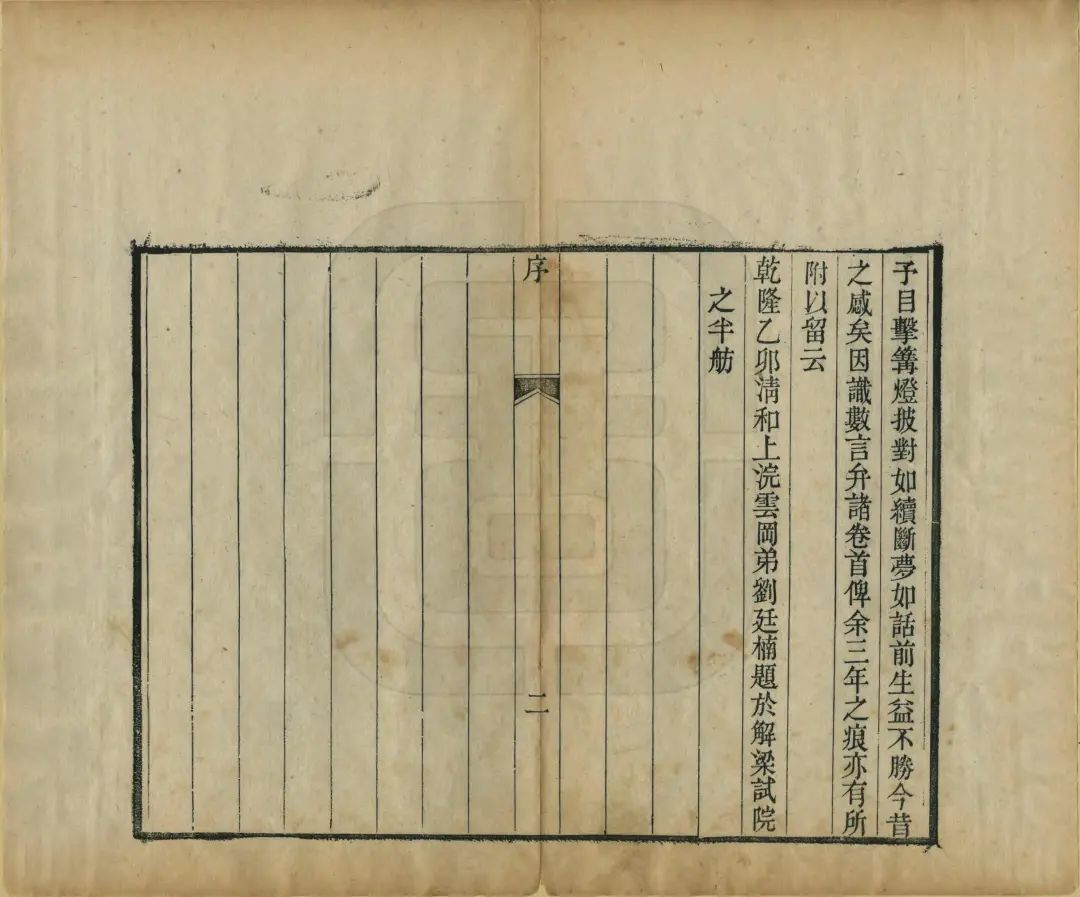 予目擊篝燈披對如續斷夢如話前生益不勝今昔
之感矣因識數言弁諸卷首俾余三年之痕亦有所
附以留云
乾隆乙卯淸和上浣雲岡弟劉廷楠題於解梁試院
之半舫
序
二